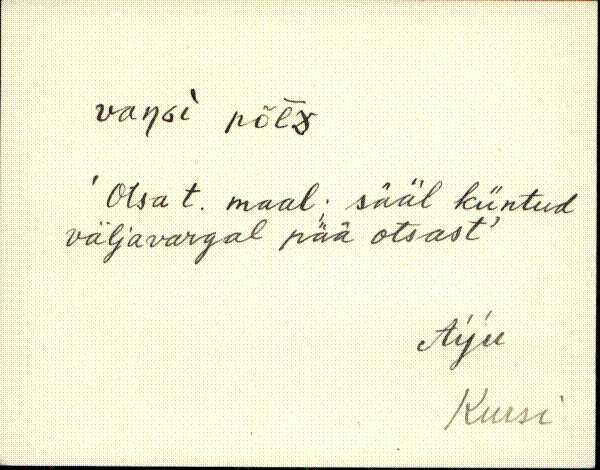 vaŋɢi põl̄ᴅ
'Otsa t. maal; sääl küntud
väljavargal pää otsast'
Aiju
Kursi